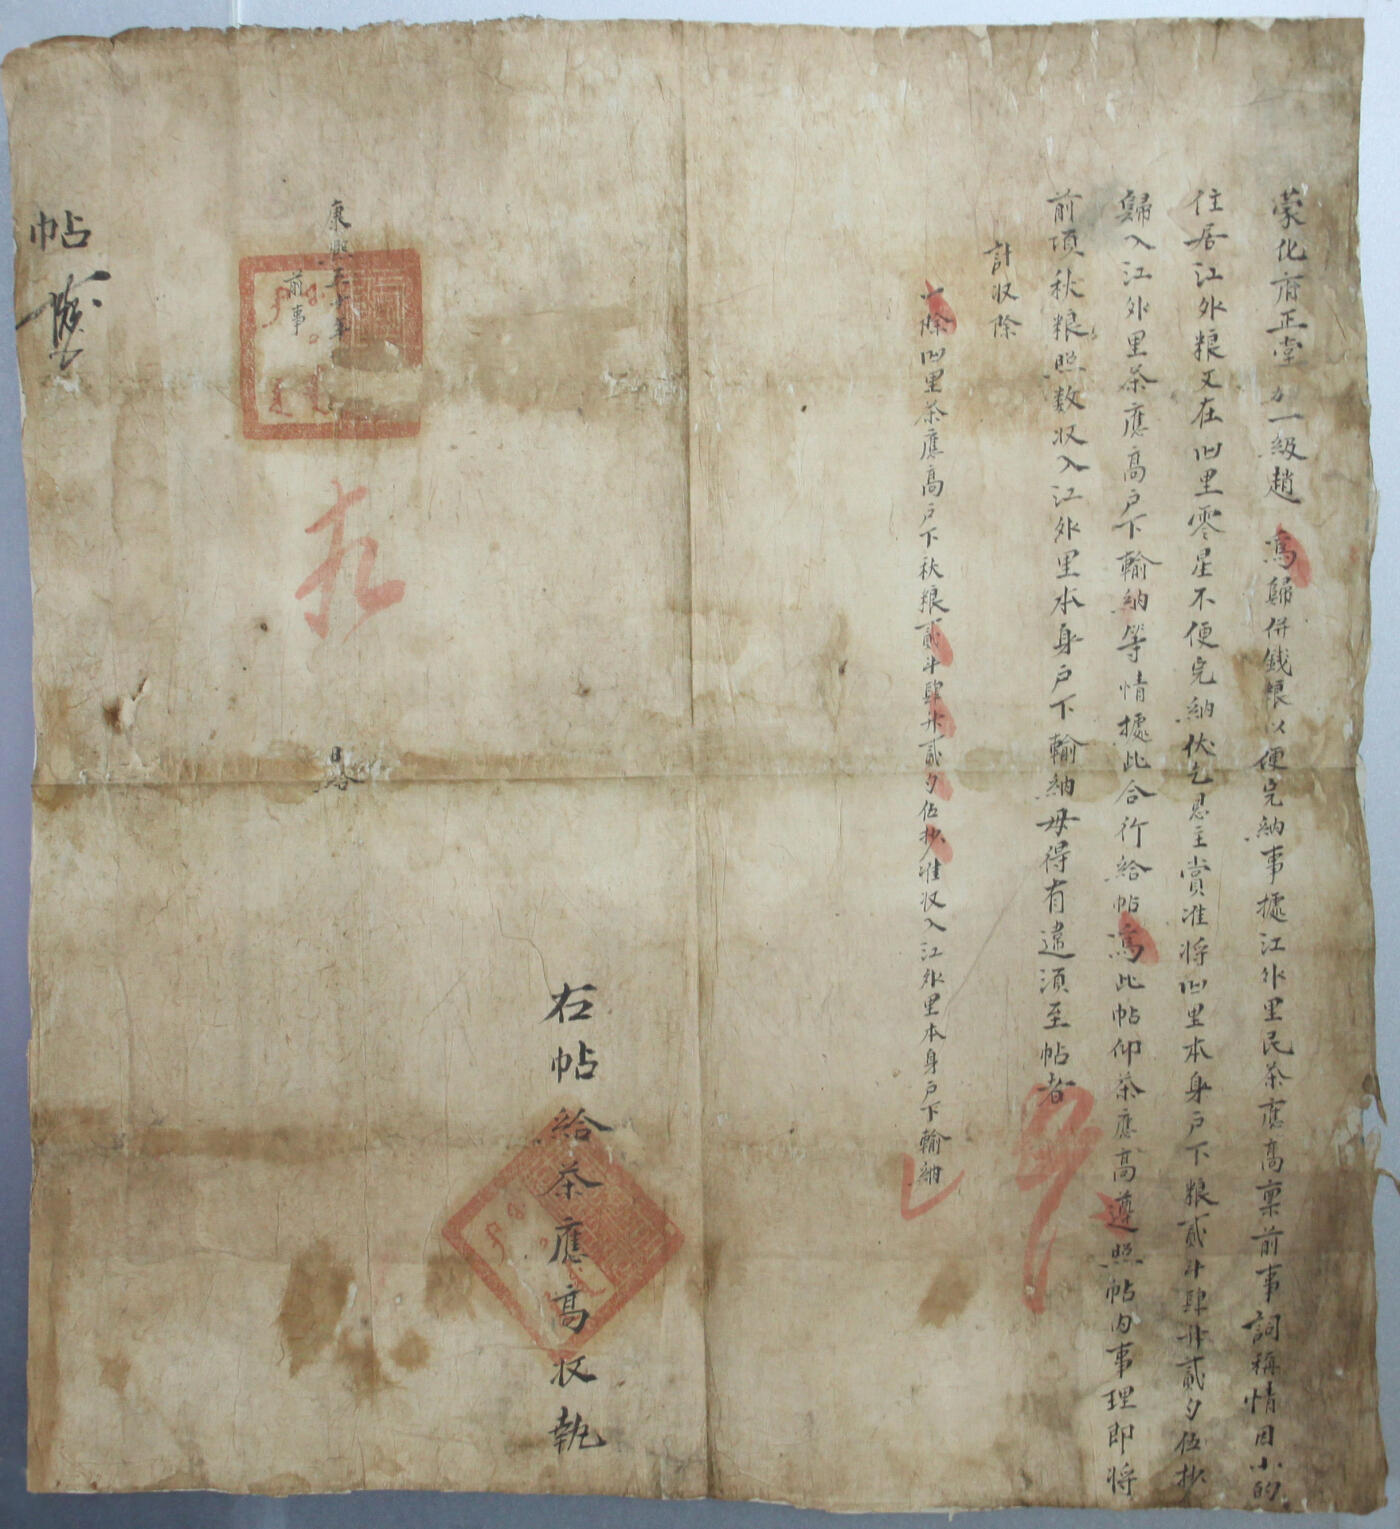 蒙化府正堂加一級趙 為歸併錢粮以便完納事據江外里民茶應高禀前事詞稱情因小的
住居江外粮又在凹里零星不便完納伏乞恩主賞准將凹里本身户下粮貳斗肆升貳夕伍抄
歸入江外里茶應高户下輸納等情據此合行給帖為此帖仰茶應高遵照帖内事理即将
前項秋粮照数収入江外里本身户下輸納毋得有違須至帖者
計収除
一除凹里茶應高户下秋粮貳斗肆升貳夕伍抄准収入江外里本身户下輸納
右帖給茶應高収執
康熙五十年
日
前事
帖